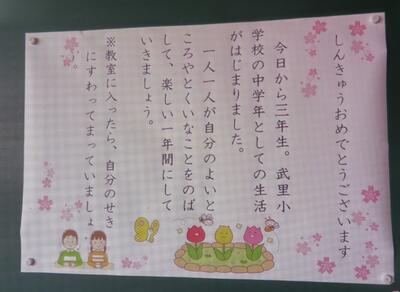 しんきゅうおめでとうございます
今日から三年生。武里小
学校の中学年としての生活
がはじまりました。
一人一人が自分のよいと
ころやとくいなことをのば
して、楽しい一年間にして
いきましょう。
※教室に入ったら、自分のせき
にすわってまっていましょ
う。